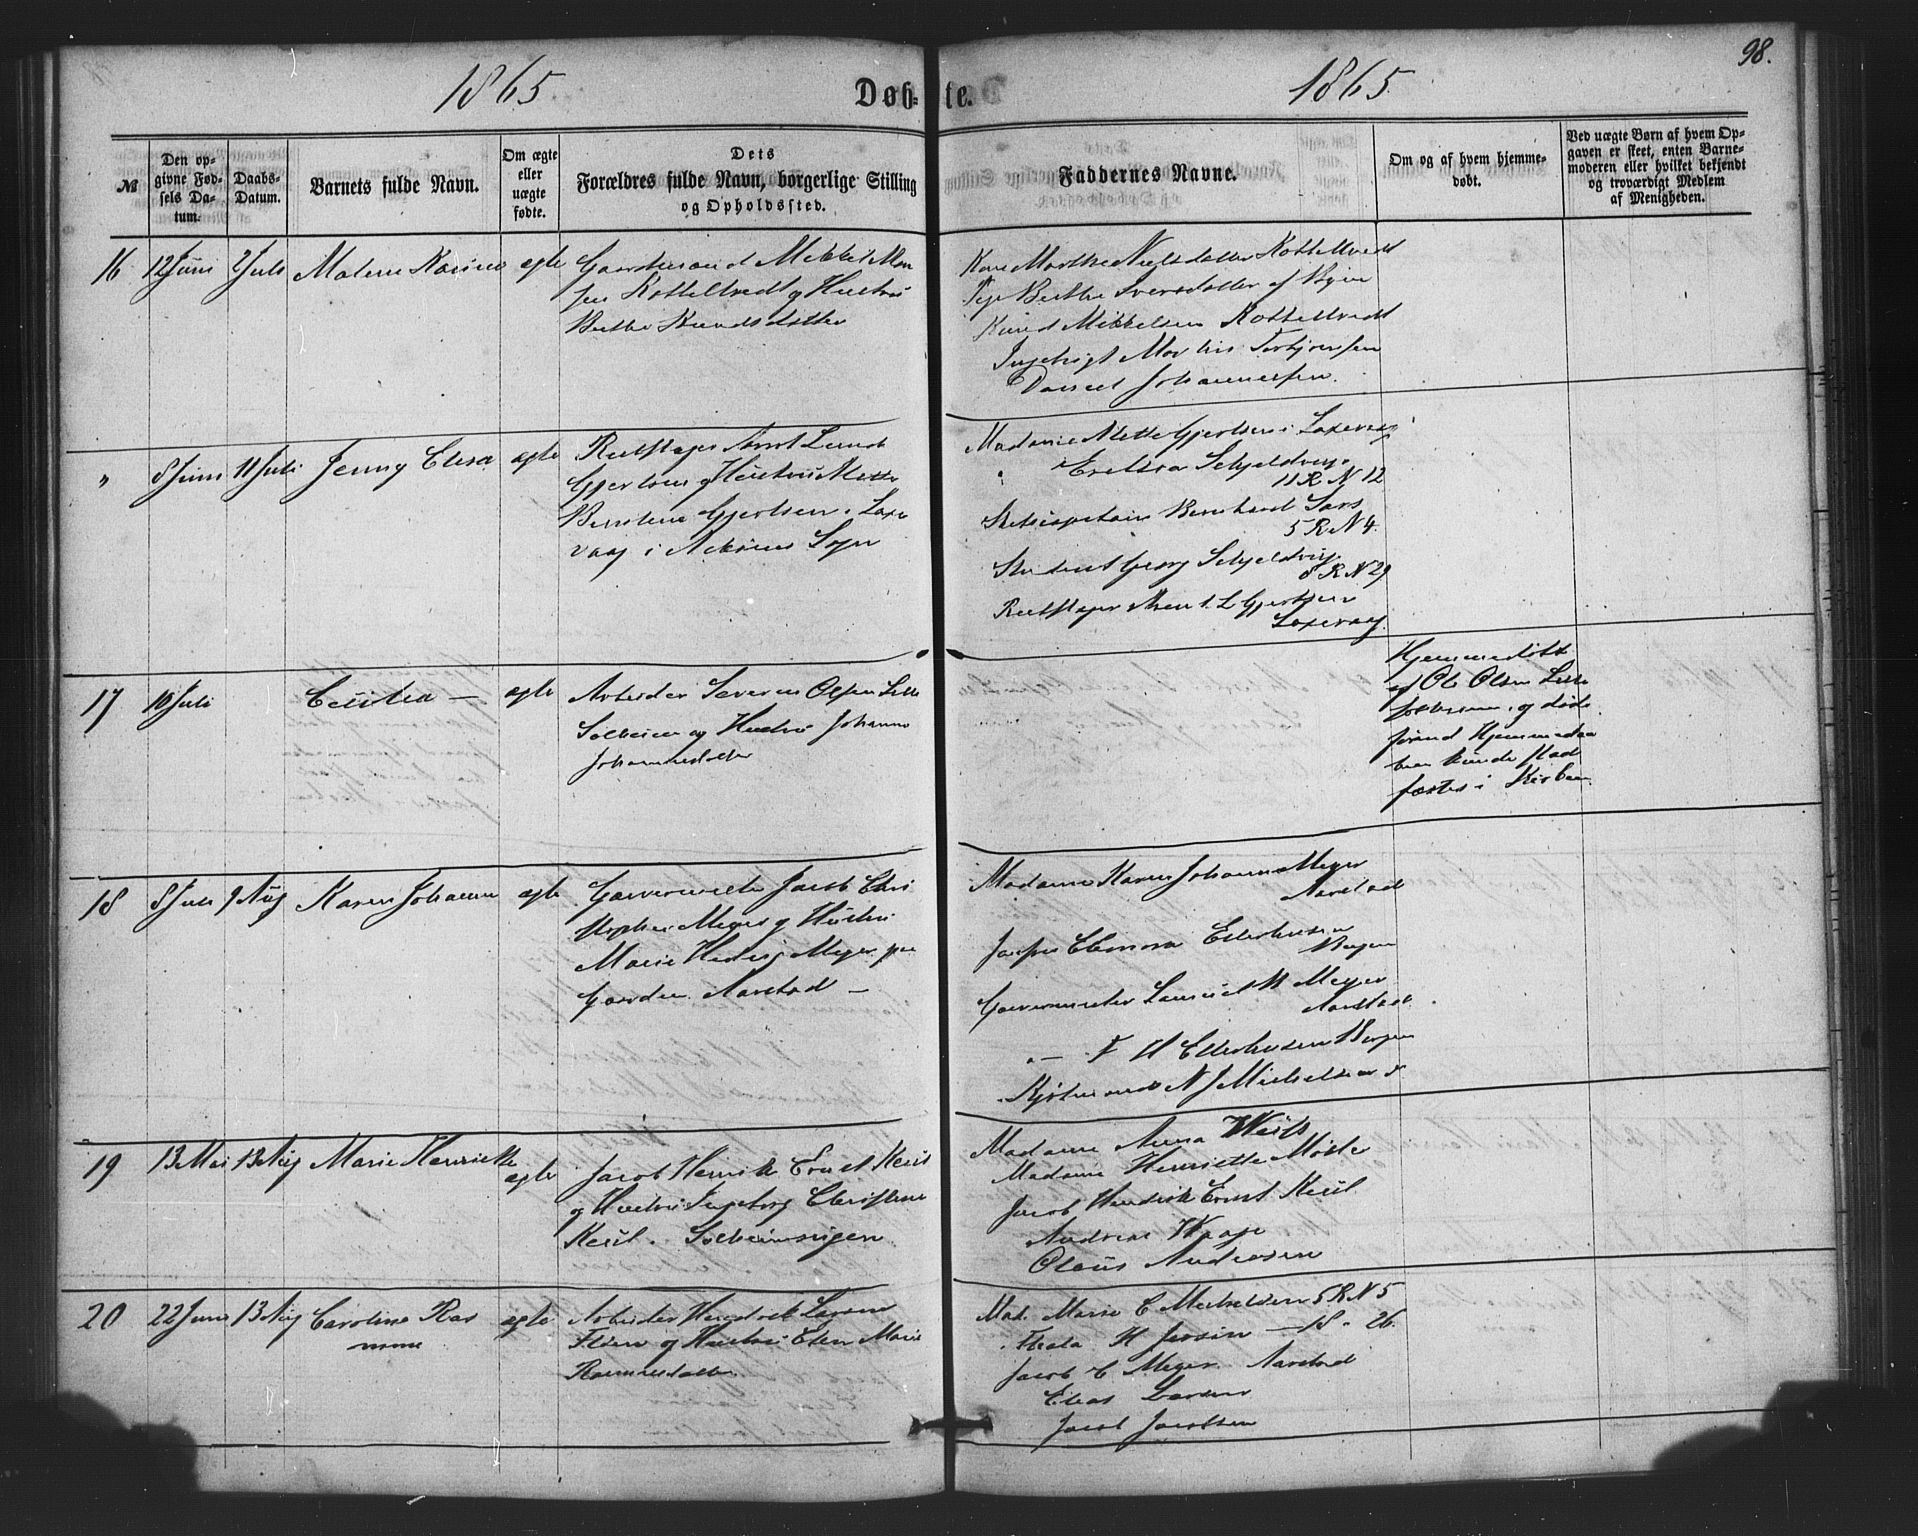 1865
Døb-
te.
1865
98.
№
Den op-
givne Fød-
sels Da-
tum.
Daabs-
Datum.
Barnets fulde Navn.
Om ægte
eller
uægte
fødte.
Dets
Forældres fulde Navn, borgerlige Stilling
og Opholdssted.
Faddernes Navne.
Om og af hvem hjemme-
døbt.
Ved uægte Børn af hvem Op-
gaven er skeet, enten Barne-
moderen eller hvilket bekjendt
og troværdigt Medlem
af Menigheden.
16 12 Juni 2 Juli Malene Karine ægte
Gaardmand Mikkel Mon
sen og Hustru
Berthe Knudsdatter
Kone Marthe Nielsdatter
Pige Berthe Sversdatter af
Knud Mikkelsen
Ingebrigt Torbjørnsen
Daniel Johannessen.
" 8 Juni 11 Juli Jenny Elisa ægte
Gjertsen og Hustru Mette
Gjertsen i Laxe
vaag i Sogn
Madame Mette Gjertsen i Laxevaag
" Schjeldrup
11 R N 12
Bernhard Sars
5 R N 4.
Student Georg Schjeldrup
8 R N 29
L Gjertsen
Laxevaag.
17 10 Juli Cecilia — ægte
Arbeider Severin Olsen Lille
Solheim og Hustru Johanne
Johannesdatter
Hjemmedøbt
af Ole Olsen Lille
Solheim, og døde
forend Hjemmedaa
ben kunde stad
fæstes i Kirken.
18 8 Juli 9 Aug Karen Johanne ægte
Garvermester Jacob Chri
stopher Meyer og Hustru
Marie Hedvig Meyer paa
Gaarden Aarstad —
Madame Karen Johanne Meyer
Aarstad
Jomfru Elenora Ellerhusen
Bergen
Garvermester Meyer
Aarstad.
" — F H Ellerhusen Bergen
Kjøbmand N J Michelsen
19 13 Mai 13 Aug Marie Henriette
ægte
Jacob Henrik Ernst Keil
og Hustru Ingeborg Christine
Keil. Solheimsvigen
Madame Anna
Madame Henriette
Jacob Hendrik Ernst Keil
Andreas Waage
Olaus Andreasen
20 22 Juni 13 Aug Caroline Ras
mine
ægte
Arbeider Hendrik Larsen
og Hustru Elen Marie
Rasmusdatter
Mad. Marie C Michelsen 5 R N 5
Thea H Jensen — 18 - 26.
Jacob C Meyer Aarstad
Elias Larsen
Jacob Jacobsen